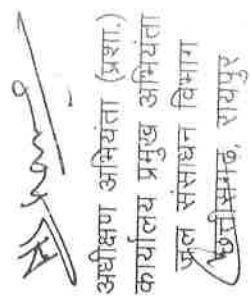 अधीक्षण अभियंता (प्रशा.)
कार्यालय प्रमुख अभियंता
जल संसाधन विभाग
रायपुर